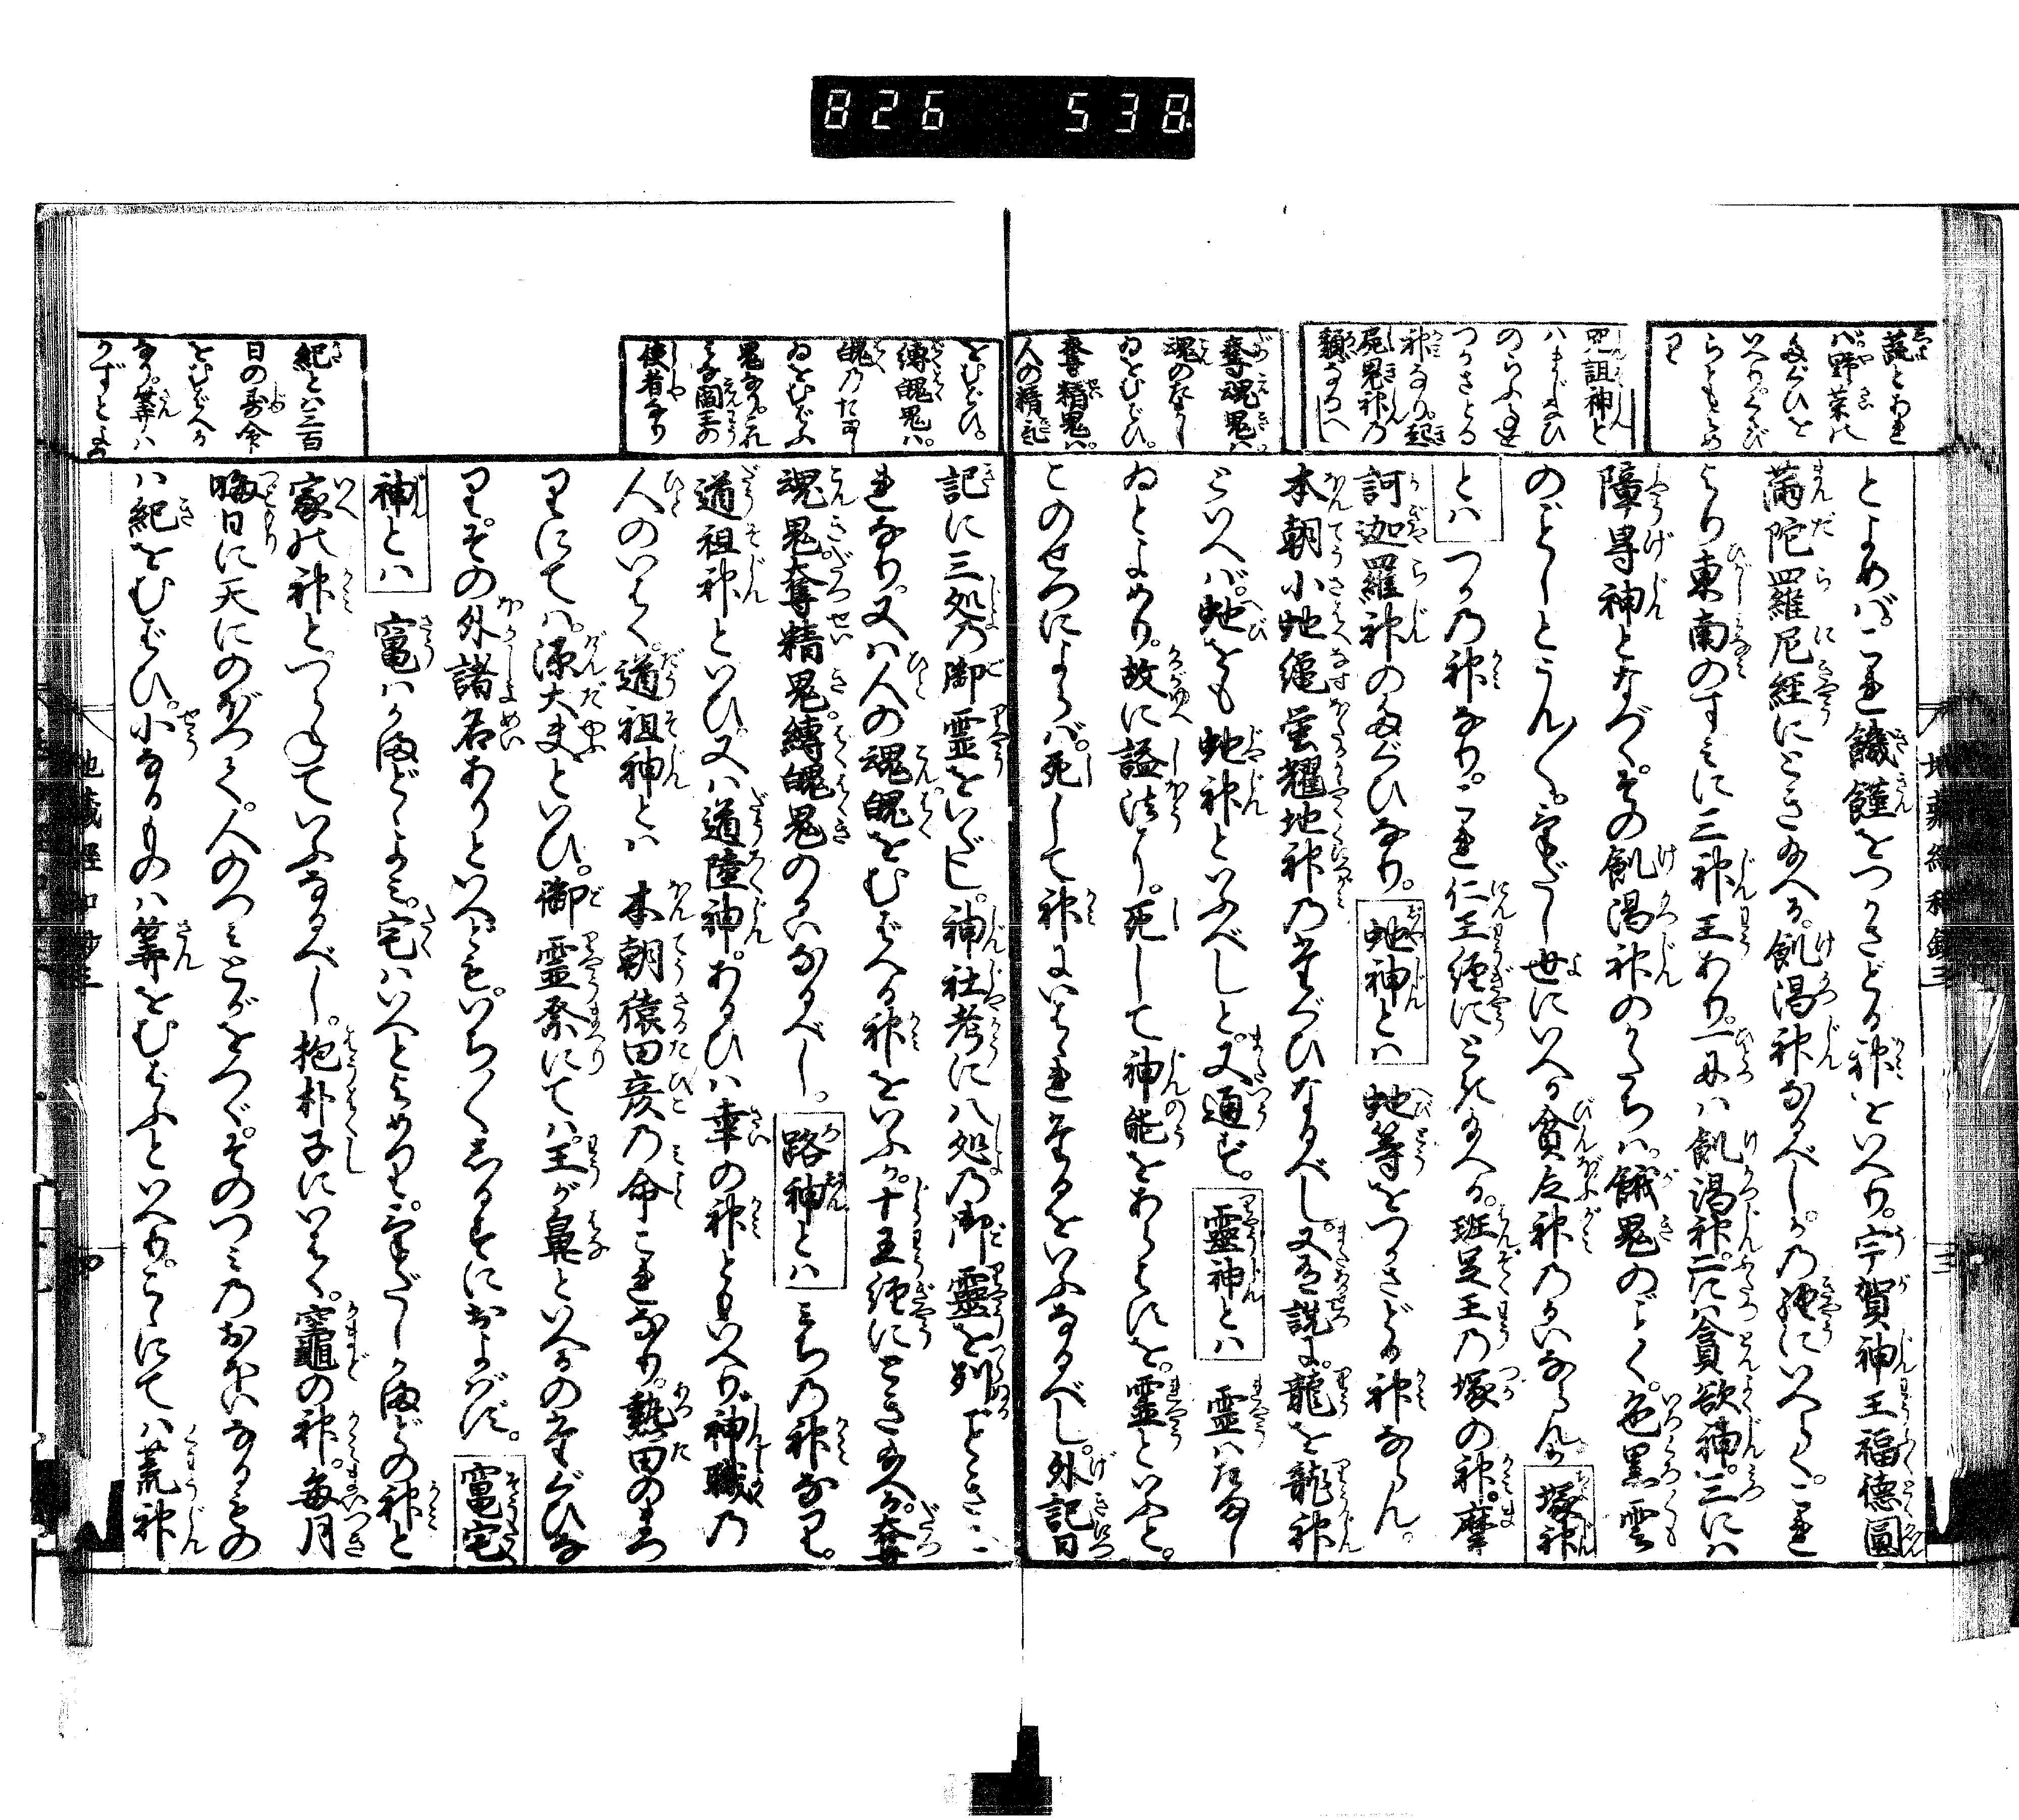 826 538
蔬とあれ
バ野菜の
たぐひを
いへりくさび
らともよめ
り
呪詛神と
ハまじなひ
のろふ事を
つかさどる
神なり起
屍鬼神乃
類なるべし
奪魂鬼ハ
魂のたまし
ゐをむばひ
奪精鬼ハ
人の精気
とよめバこれ饑饉をつかさどる神といへり宇賀神王福徳圓
満陀羅尼経にときたまへる飢渇神なるべしかの経にいへらくこれ
より東南のすミに三神王あり一ツにハ飢渇神二にハ貪欲神三にハ
障㝵神となづくその飢渇神のかたちハ餓鬼のごとく色黒雲
のごとしとうん〱たゞし世にいへる貧乏神のたぐひならんか塚神
とハつかの神なりこれ仁王経にときたまへる班足王の塚の神摩
訶迦羅神のたぐひなり蛇神とハ蛇等をつかさどる神ならん
本朝小蛇縄蛍耀地神乃たぐひなるべし又ある説に龍を龍神
といへバ蛇をも蛇神といふべしと又通ず靈神とハ霊ハたまし
ゐとよめり故に謚法に死して神能をあらはすを霊といふと
このせつによらバ死して神にいはれたるをいふなるべし外記日
をむばひ
縛魄鬼ハ
魄乃たまし
ゐをむばふ
鬼なりこれ
ミな閻王の
使者なり
紀とハ三百
日の寿命
をむばへる
なり筭ハ
かずとよみ
記に三処乃御霊をいだし神社考に八処乃御靈を列どときこ
れなり又ハ人の魂魄をむばへる神をいふか十王経にときたまへる奪
魂鬼奪精鬼縛魄鬼のたぐひなるべし路神とハミち乃神なり
道祖神といひ又ハ道陸神あるひハ幸の神ともいへり神職乃
人のいはく道祖神とハ本朝猿田彦乃命これなり熱田のまつ
りにてハ源大夫といひ御霊祭にてハ王が鼻といへるのたぐひな
りその外諸名ありといへどもいち〱しるすにおよバず竃宅
神とハ竃ハかまどとよミ宅ハいへとよめりたゞしかまどの神と
家の神とつらねていふなるべし抱朴子にいはく竈の神毎月
晦日に天にのぼつて人のつミとがをつぐそのつミ乃おほいなるもの
ハ紀をむばひ小なるものハ筭をむばふといへりこゝにてハ荒神
地蔵経和鈔三
地蔵経和鈔三